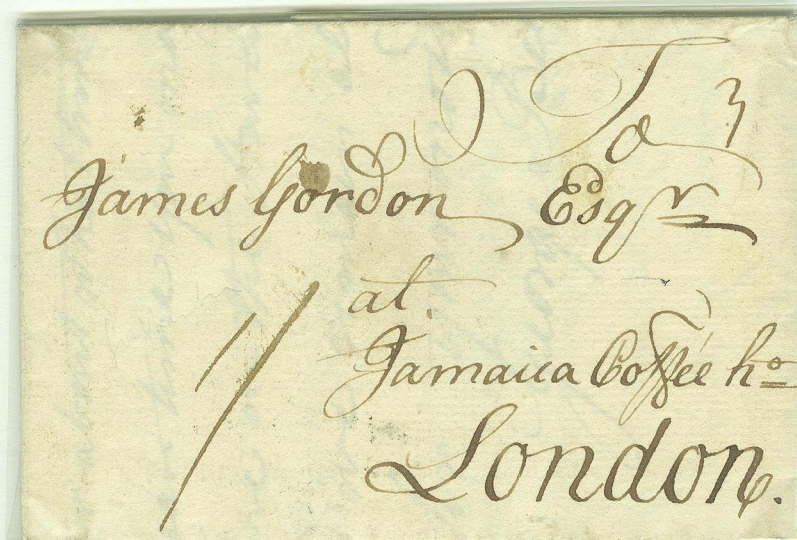 To
James Gordon Esqr
at.
Jamaica Coffee ho
London.